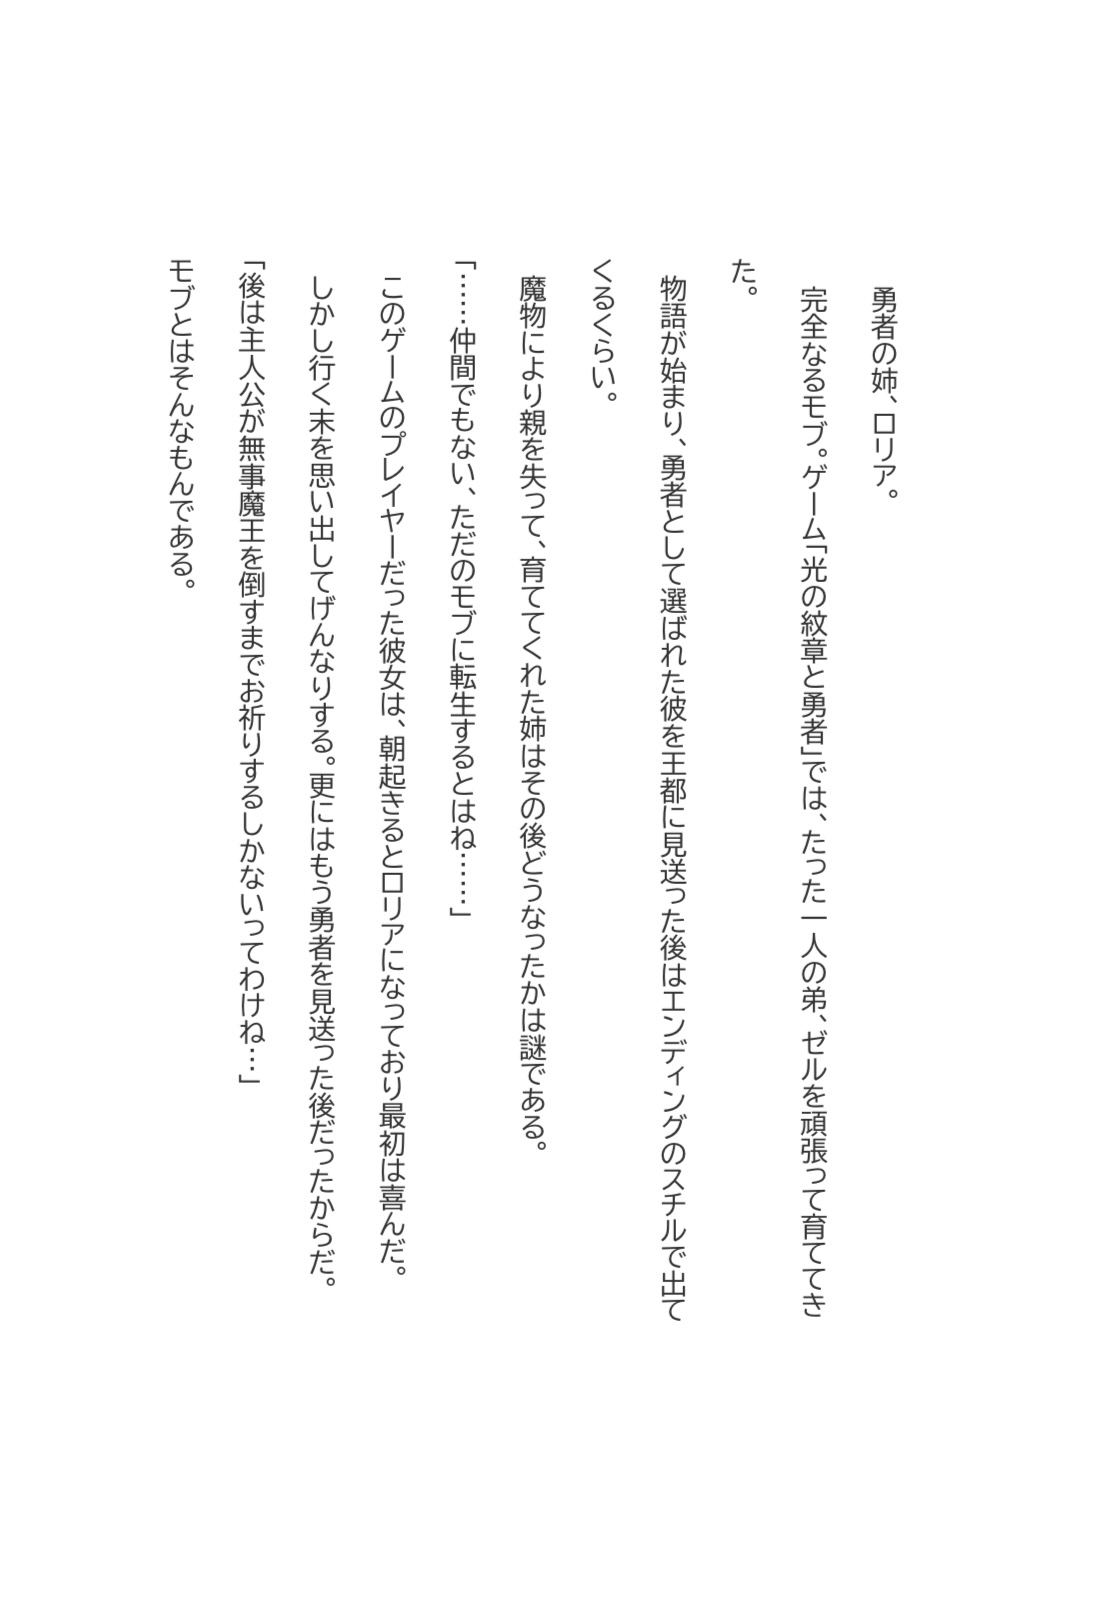 勇者の姉、ロリア。
完全なるモブ。ゲーム「光の紋章と勇者」では、たった一人の弟、ゼルを頑張って育ててき
た。
物語が始まり、勇者として選ばれた彼を王都に見送った後はエンディングのスチルで出て
くるくらい。
魔物により親を失って、育ててくれた姉はその後どうなったかは謎である。
「……仲間でもない、ただのモブに転生するとはね……」
このゲームのプレイヤーだった彼女は、朝起きるとロリアになっており最初は喜んだ。
しかし行く末を思い出してげんなりする。更にはもう勇者を見送った後だったからだ。
「後は主人公が無事魔王を倒すまでお祈りするしかないってわけね…」
モブとはそんなもんである。